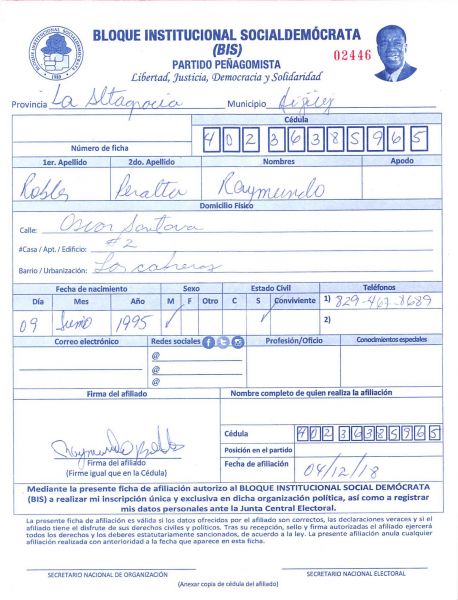 BLOQUE INSTITUCIONAL SOCIALDEMÓCRATA
(BIS)
PARTIDO PEÑAGOMISTA
Libertad, Justicia, Democracia y Solidaridad
02446
BLOQUE INSTITUCIONAL SOCIALDEMOCRATA
Provincia La Altagracia Municipio Higüey
Cédula
Número de ficha 40236385965
1er. Apellido 2do. Apellido Nombres Apodo
Robles Peralta Raymundo
Domicilio Físico
Calle: Oscar Santana
#Casa / Apt. / Edificio: #2
Barrio / Urbanización: Los cajueros
Fecha de nacimiento Sexo Estado Civil Teléfonos
Día Mes Año M F Otro C S Conviviente 1) 829-467-8689
09 Junio 1995 ✓ ✓ 2)
Correo electrónico Redes sociales Profesión/Oficio Conocimientos especiales
@
@
@
Firma del afiliado Nombre completo de quien realiza la afiliación
Raymundo Robles
Cédula 40236385965
Firma del afiliado
(Firme igual que en la Cédula)
Posición en el partido
Fecha de afiliación 04/12/18
Mediante la presente ficha de afiliación autorizo al BLOQUE INSTITUCIONAL SOCIAL DEMÓCRATA
(BIS) a realizar mi inscripción única y exclusiva en dicha organización política, así como a registrar
mis datos personales ante la Junta Central Electoral.
La presente ficha de afiliación es válida si los datos ofrecidos por el afiliado son correctos, las declaraciones veraces y si el
afiliado tiene el disfrute de sus derechos civiles y políticos. Tras su recepción, sello y firma autorizadas el afiliado ejercerá
todos los derechos y los deberes estatutariamente sancionados, de acuerdo a la ley. La presente afiliación anula cualquier
afiliación realizada con anterioridad a la fecha que aparece en esta ficha.
SECRETARIO NACIONAL DE ORGANIZACIÓN SECRETARIO NACIONAL ELECTORAL
(Anexar copia de cédula del afiliado)